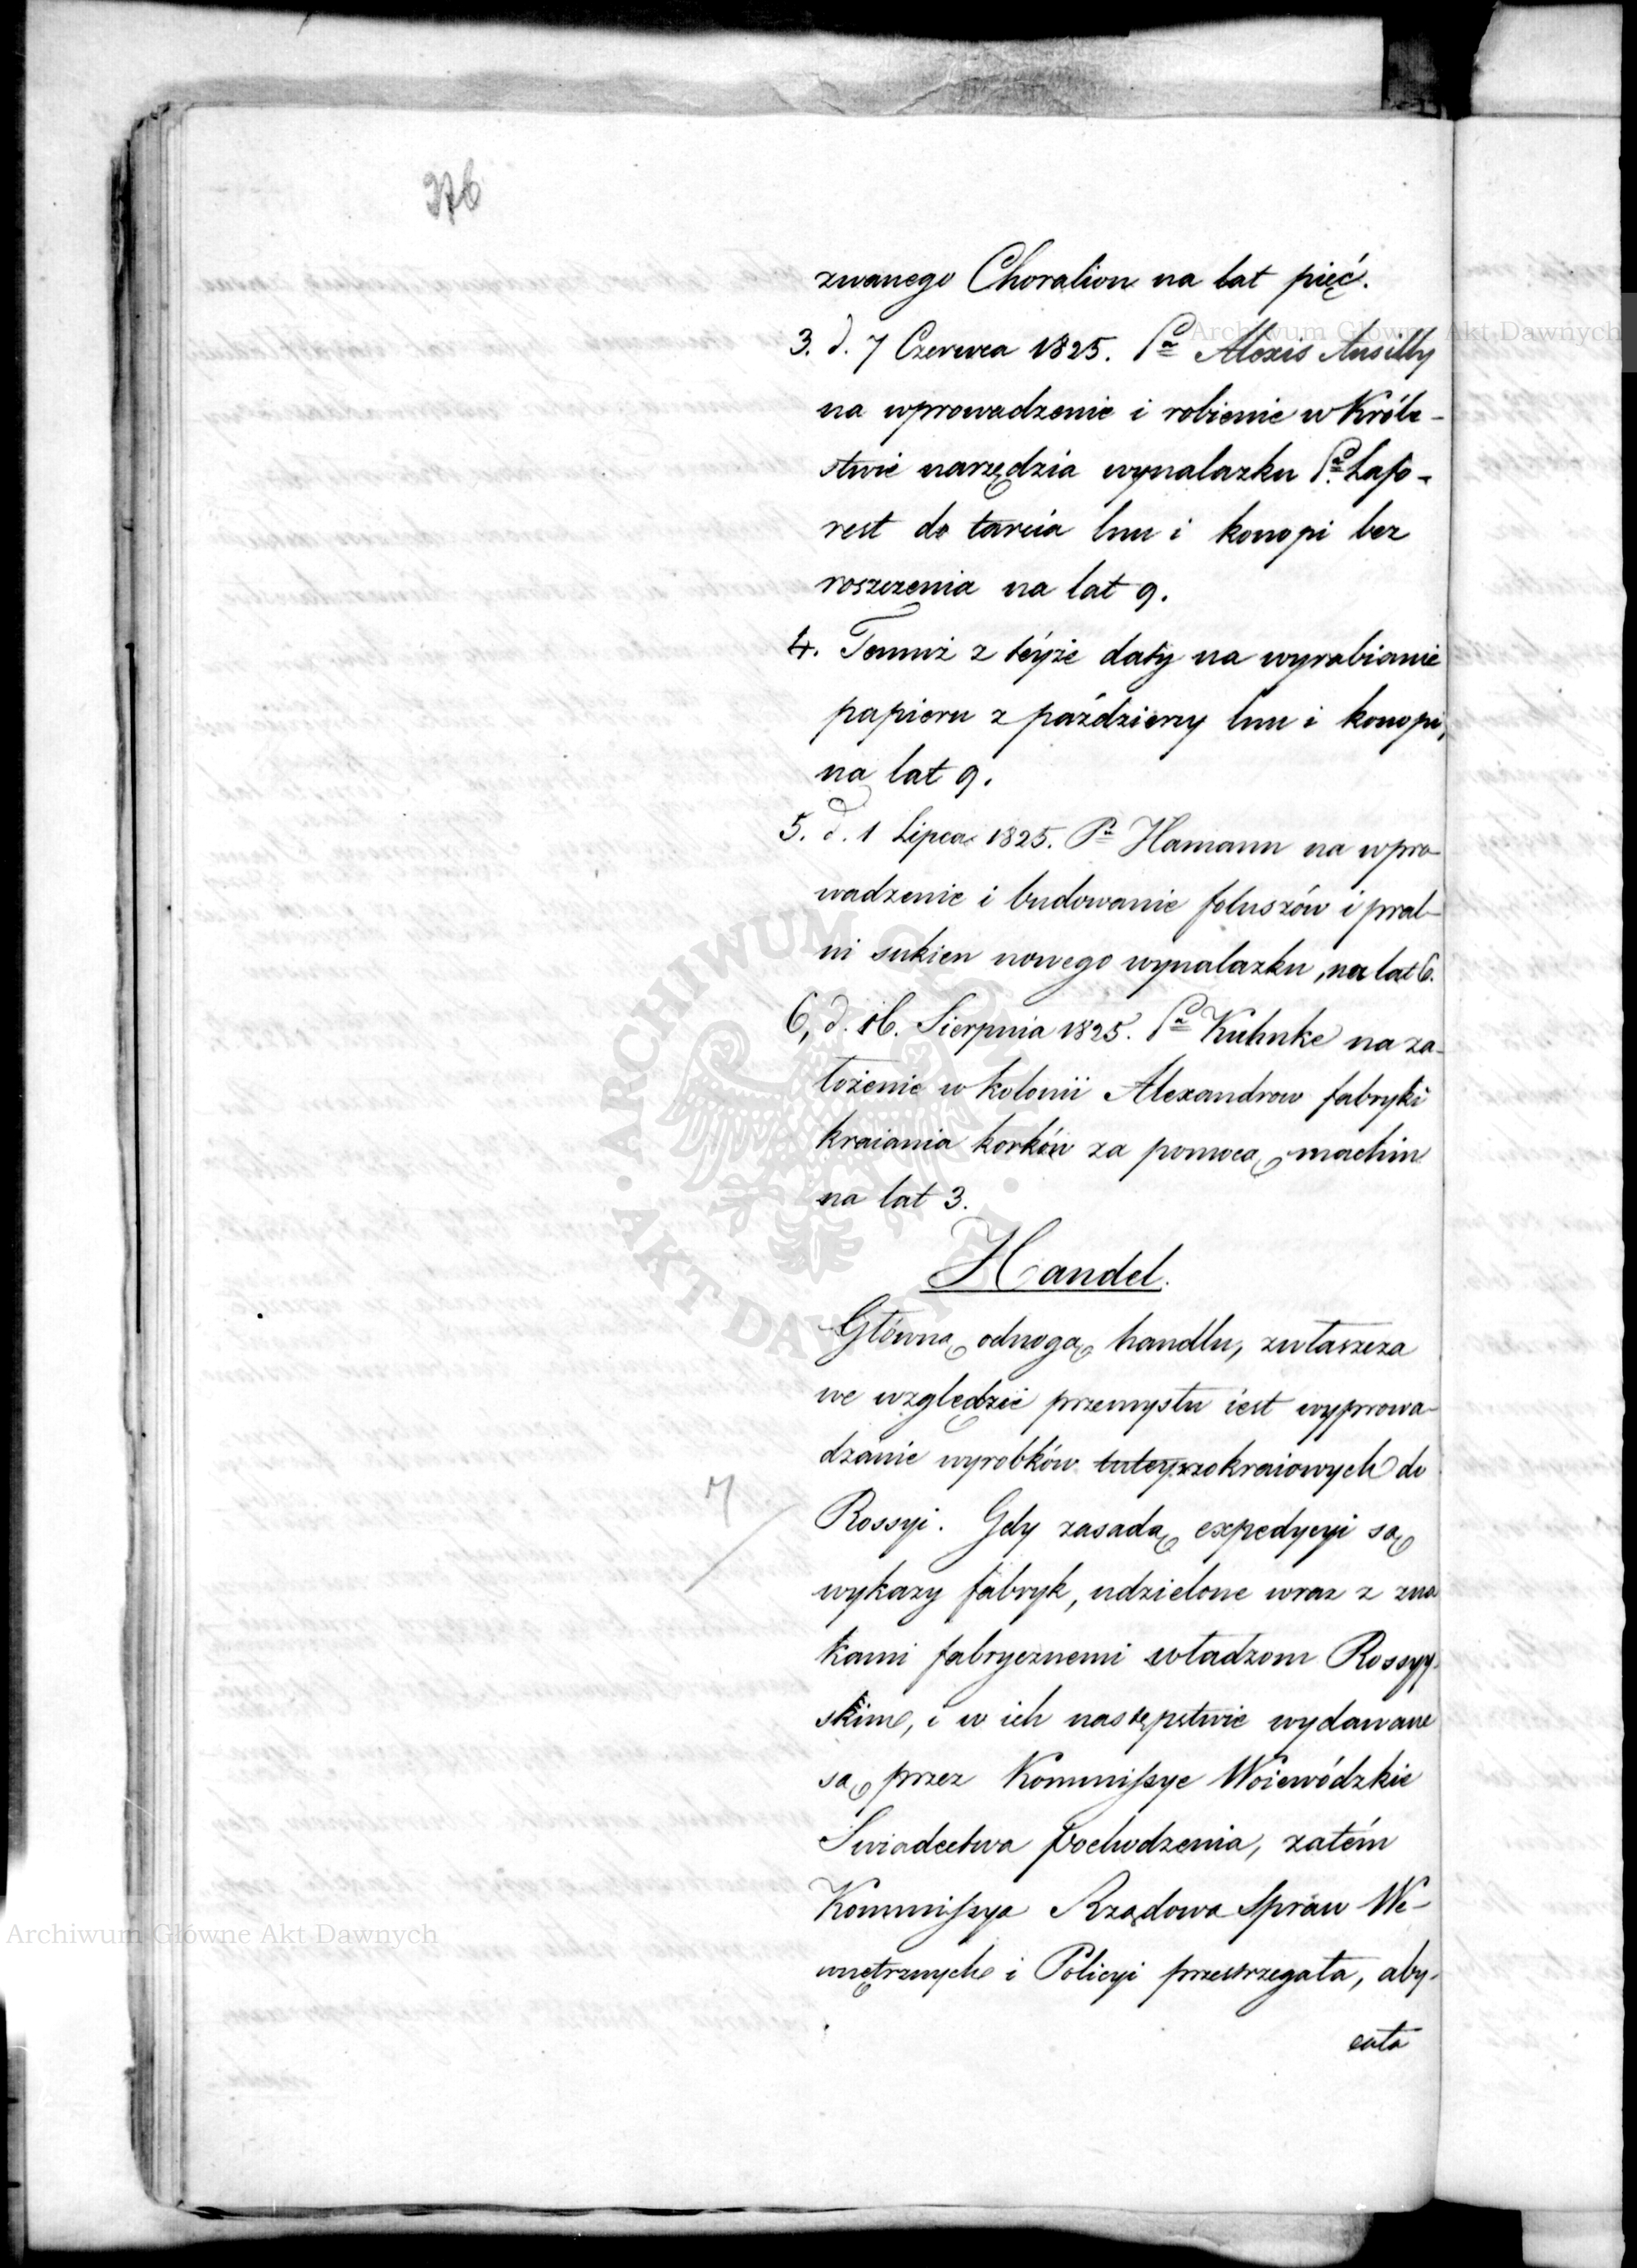 376
zwanego Choralion na lat pięć.
3. d. 7 Czerwca 1825. Pu Alexis Ausilly
na wprowadzenie i robienie w Króle-
stwie narzędzia wynalazku Pa. Lafo-
rest do tarcia lnu i konopi bez
roszczenia na lat 9.
4. Temuż z téyże daty na wyrabianie
papieru z paździerzy lnu i konopi,
na lat 9.
5. d. 1 Lipca 1825. Pu Hamann na wpro-
wadzenie i budowanie foluszów i pral-
ni sukien nowego wynalazku, na lat 6.
6, d. 16. Sierpnia 1825. Pu Kuhnke na za-
łożenie w kolonii Alexandrow fabryki
kraiania korków za pomocą machin
na lat 3.
Handel.
Główną odnogą handlu, zwłaszcza
we względzie przemysłu iest wyprowa-
dzanie wyrobków kraiowych do
7
Rossyi. Gdy zasadą expedycyi są
wykazy fabryk, udzielone wraz z zna
kami fabrycznemi władzom Rossyy-
skim, i w ich następstwie wydawane
są przez Kommissye Woiewódzkie
Swiadectwa pochodzenia, zatém
Kommissya Rządowa Spraw We-
wnętrznych i Policyi przestrzegała, aby
cała
Archiwum Główne Akt Dawnych
Archiwum Główne Akt Dawnych
ARCHIWUM GŁÓWNE · AKT DAWNYCH ·